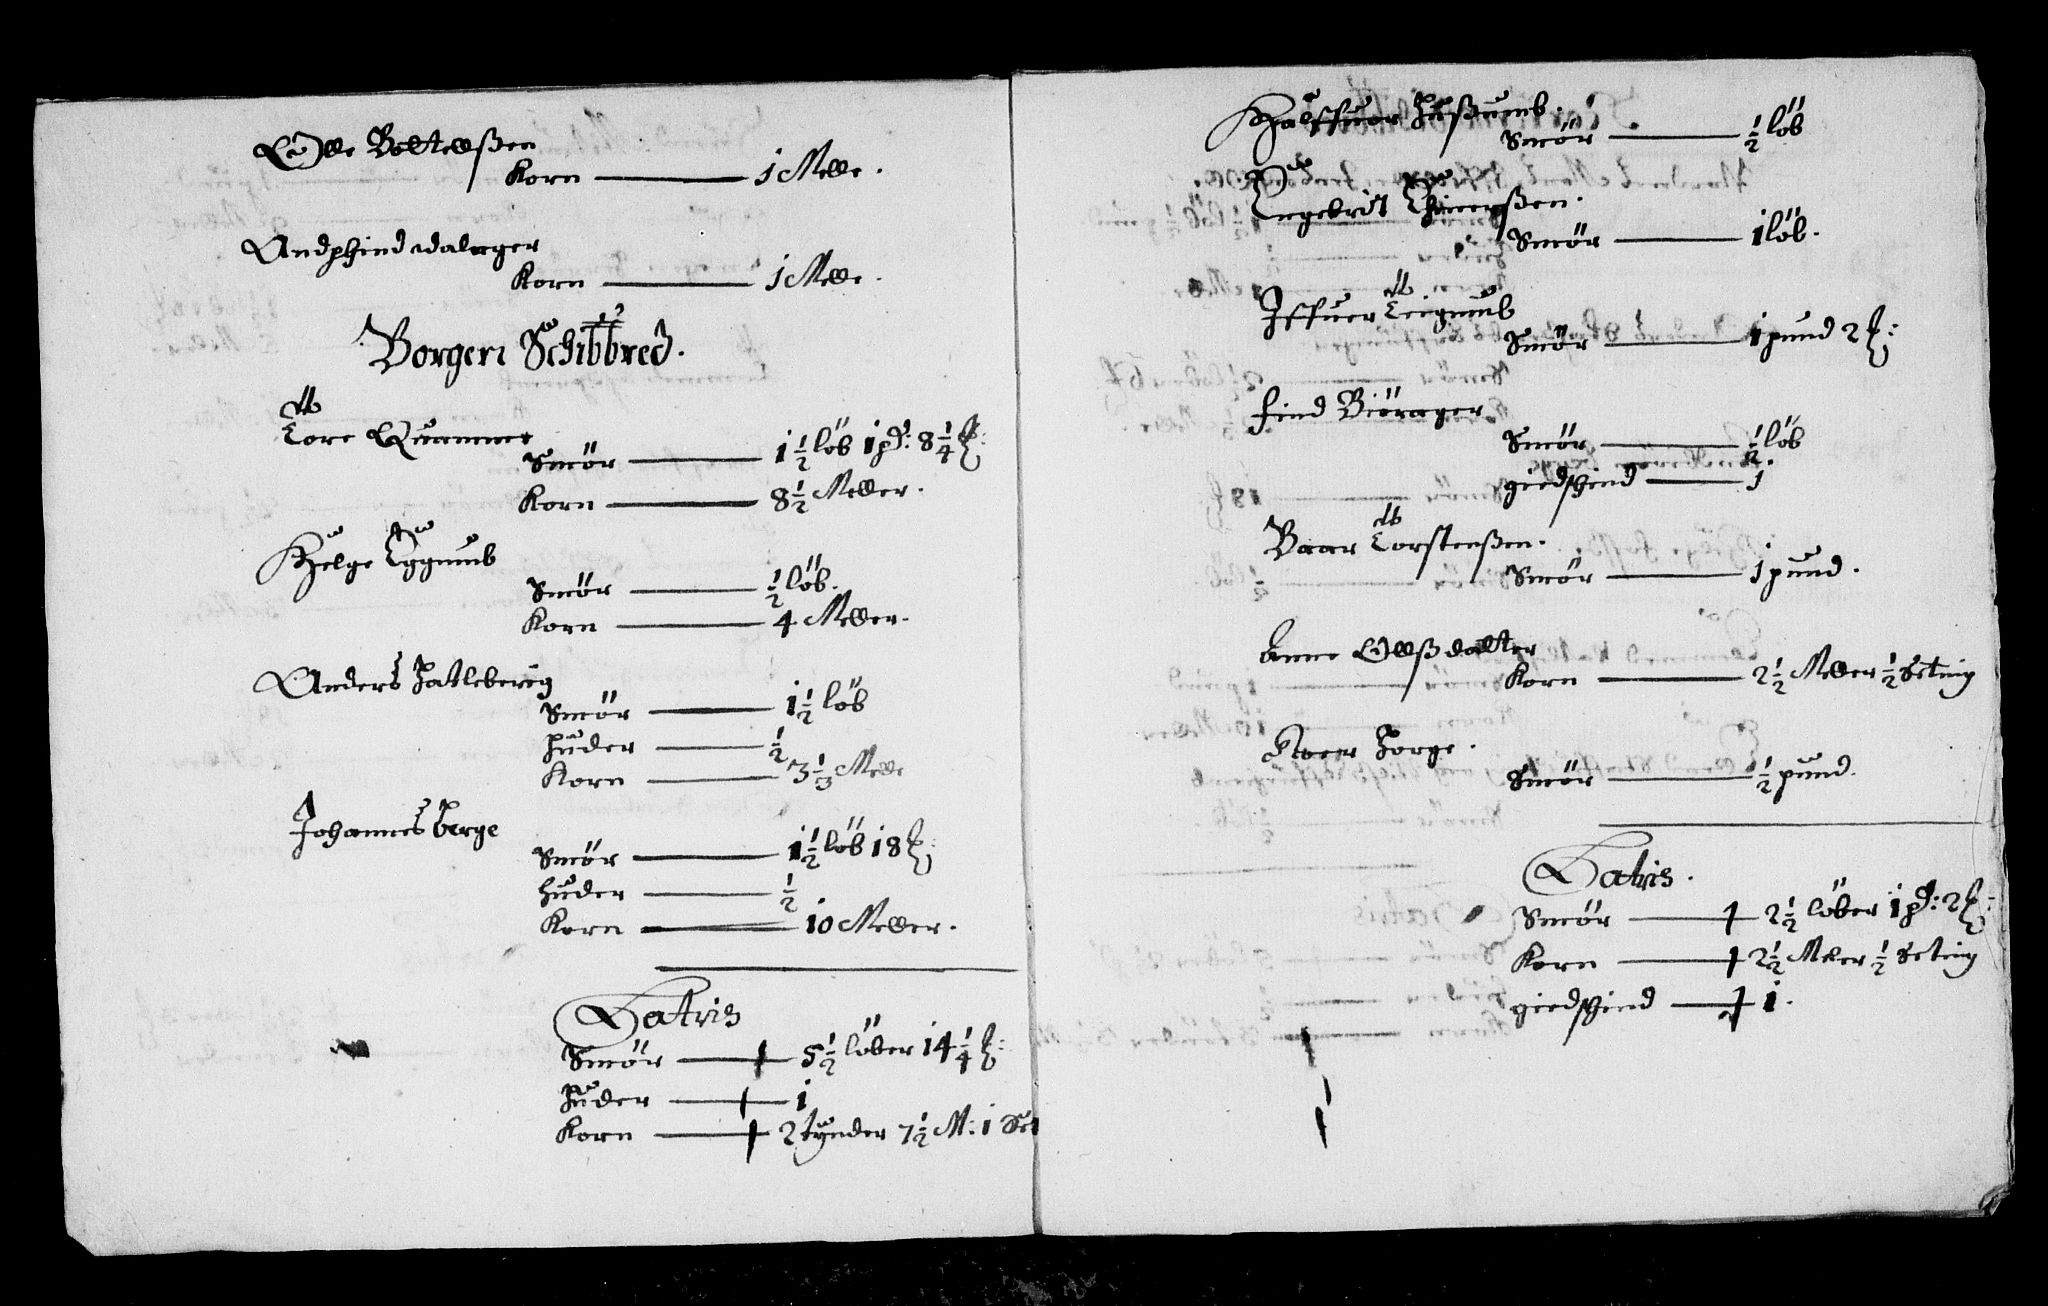 Olle Bottellßen
Korn — 1 Melle.
Andphind Dalager
Korn — 1 Melle.
Borgeri Schibbred.
Tore Quamme
Smör — 1½ löb 1 pd: 8¼ ℔:
Korn — 8½ Meller.
Helge Eggumb
Smör — ½ löb.
Korn — 4 Meller.
Anders Hatleberig
Smör — 1½ löb
Huder — ½
Korn — 3⅓ Melle
Johannes Berge
Smör — 1½ löb 18 ℔:
huder — ½
Korn — 10 Meller.
Latris
Smör — 5½ löber 14¼ ℔:
Huder — 1
Korn — 2 tynder 7½ M: 1 Set
Halffuor Hußumb.
Smör — ½ löb
Engebrit
Smör — 1 löb.
Iffuer Teigmub
Smör — 1 pund 2 ℔:
find Biörager
Smör — ½ löb
giedschind — 1.
Baar Torstenßen.
Smör — 1 pund.
Anne Ollßdatter
Korn — 2½ Meller ½ Seting
Roer Horge.
Smör — ½ pund.
Latris.
Smör — 2½ löber 1 pd: 2 ℔:
Korn — 2½ Meler ½ Seting
giedschind — 1.